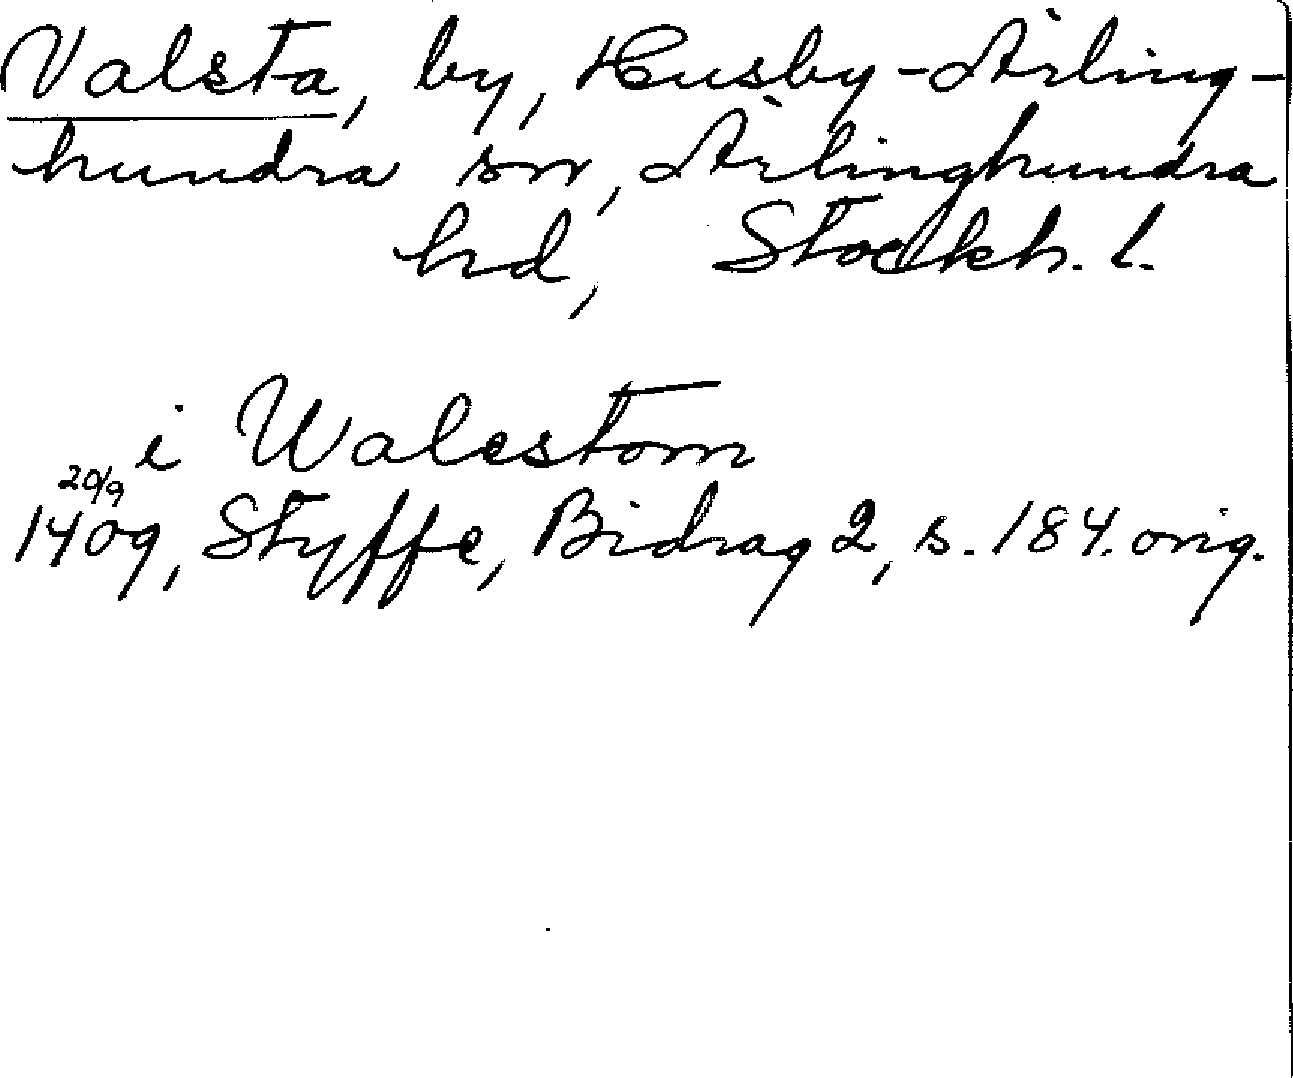 Valsta, by, Husby-Ärling-
hundra sn, Ärlinghundra
hd, Stockh. l.
i Walestom
20/9
1409, Styffe, Bidrag 2, s. 184. orig.